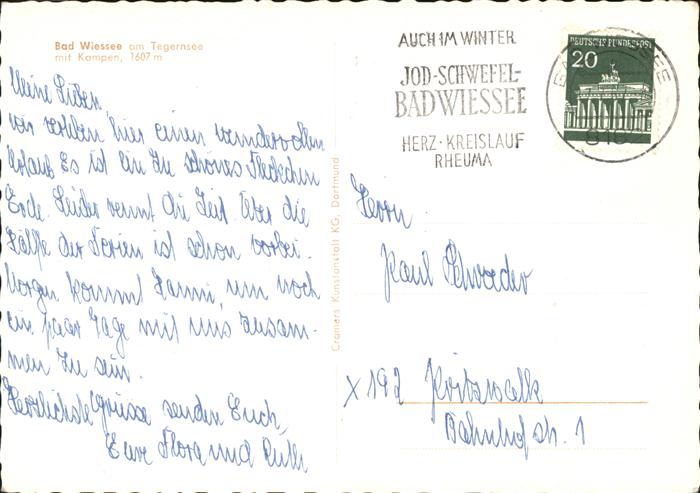 Bad Wiessee am Tegernsee
mit Kampen, 1607 m
Meine Lieben
wir verleben hier einen wundervollen
Urlaub Es ist ein zu schönes Fleckchen
Erde. Leider rennt die Zeit. Über die
Hälfte der Ferien ist schon vorbei.
Morgen kommt Hanni, um noch
ein paar Tage mit uns zusam-
men zu sein.
Herzlichste Grüsse senden Euch,
Eure Flora und Ruth
Cramers Kunstanstalt KG, Dortmund
AUCH IM WINTER
JOD-SCHWEFEL-
BAD WIESSEE
HERZ·KREISLAUF
RHEUMA
DEUTSCHE BUNDESPOST
20
8182
Herrn
Paul Schroeder
X 192 Pritzwalk
Bahnhofstr. 1